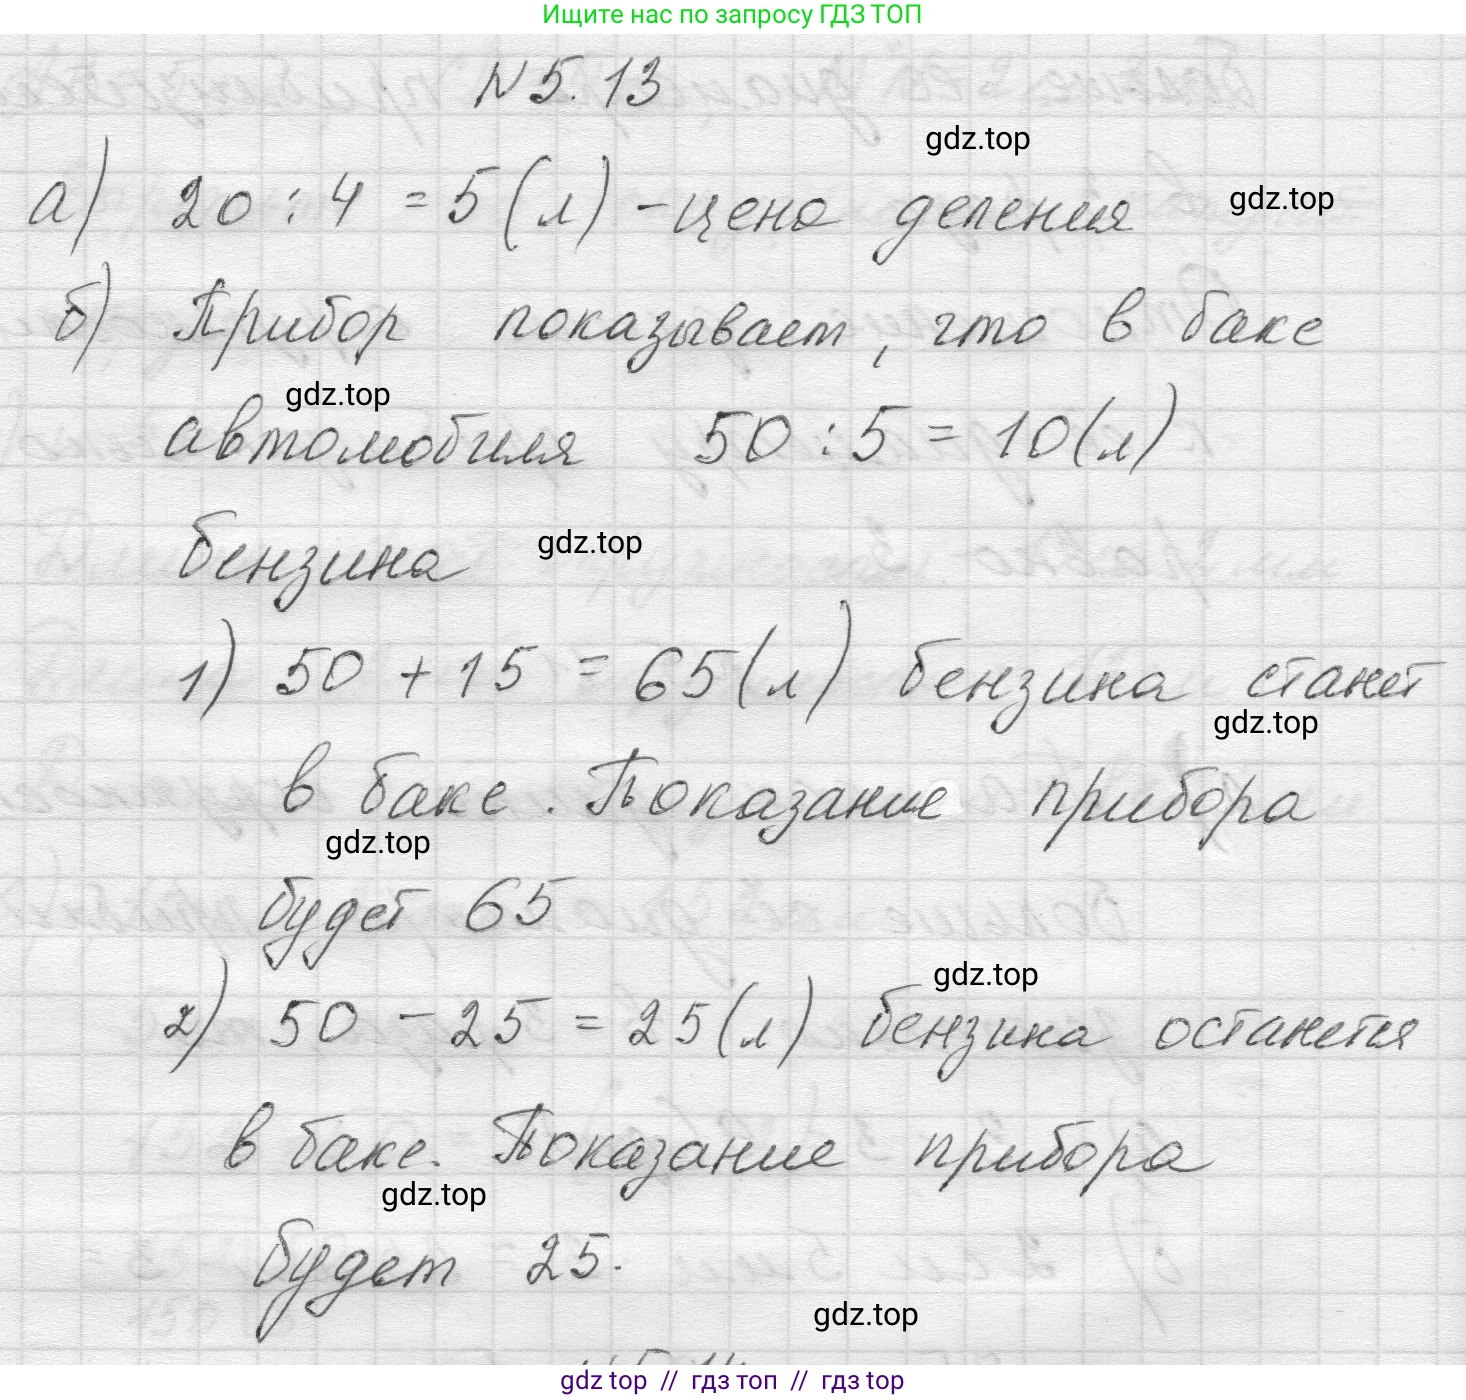 Ищите нас по запросу ГДЗ ТОП
N 5.13
gdz.top
а) 20 : 4 = 5 (л) - цена деления
gdz.top
б) Прибор показывает, что в баке
gdz.top
автомобиля 50 : 5 = 10 (л)
бензина
gdz.top
1) 50 + 15 = 65 (л) бензина станет
gdz.top
в баке. Показание прибора
gdz.top
будет 65
gdz.top
2) 50 - 25 = 25 (л) бензина останется
в баке. Показание прибора
gdz.top
будет 25.
gdz.top
gdz top // гдз топ // гдз top